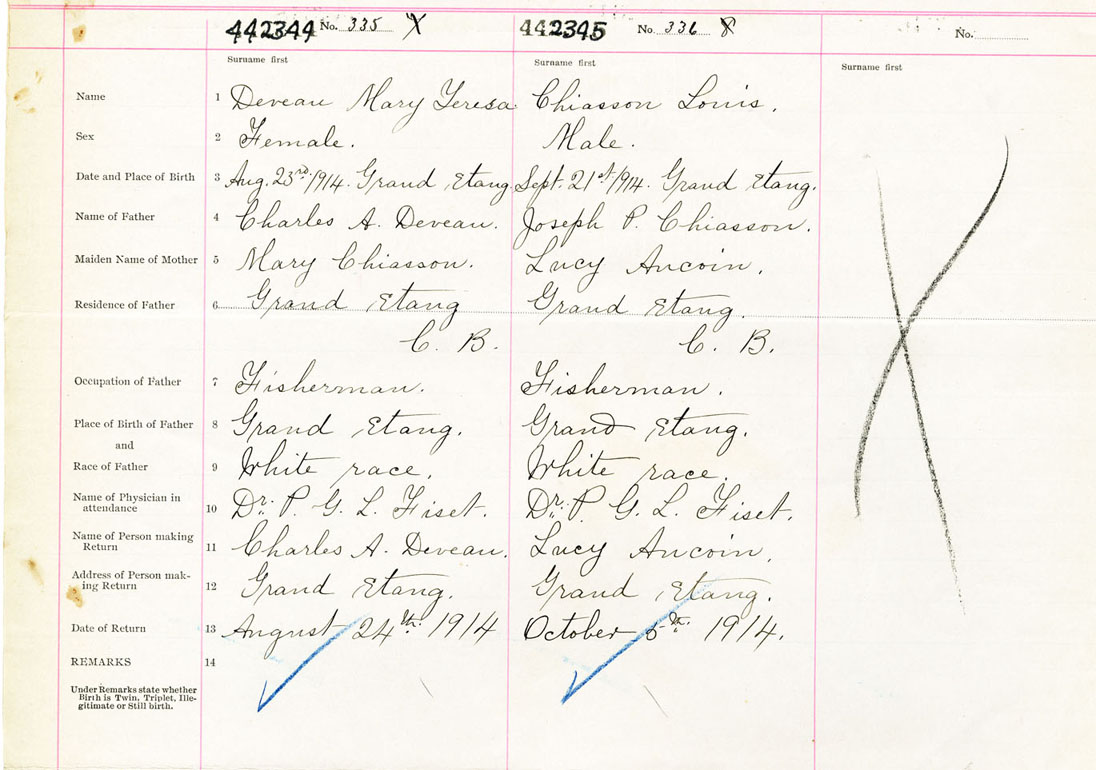 442344 No. 335 X 442345 No. 336 X No.
Surname first Surname first Surname first
Name 1 Deveau Mary Teresa Chiasson Louis.
Sex 2 Female. Male.
Date and Place of Birth 3 Aug. 23rd/1914. Grand Etang Sept. 21st/1914. Grand Etang.
Name of Father 4 Charles A. Deveau. Joseph P. Chiasson.
Maiden Name of Mother 5 Mary Chiasson. Lucy Aucoin.
Residence of Father 6 Grand Etang Grand Etang.
C. B. C. B.
Occupation of Father 7 Fisherman. Fisherman.
Place of Birth of Father 8 Grand Etang. Grand Etang.
and
Race of Father 9 White race. White race.
Name of Physician in
attendance 10 Dr. P. G. L. Fiset. Dr. P. G. L. Fiset.
Name of Person making
Return 11 Charles A. Deveau. Lucy Aucoin.
Address of Person mak-
ing Return 12 Grand Etang. Grand Etang.
Date of Return 13 August 24th. 1914 October 5th. 1914.
REMARKS 14
Under Remarks state whether
Birth is Twin, Triplet, Ille-
gitimate or Still birth.